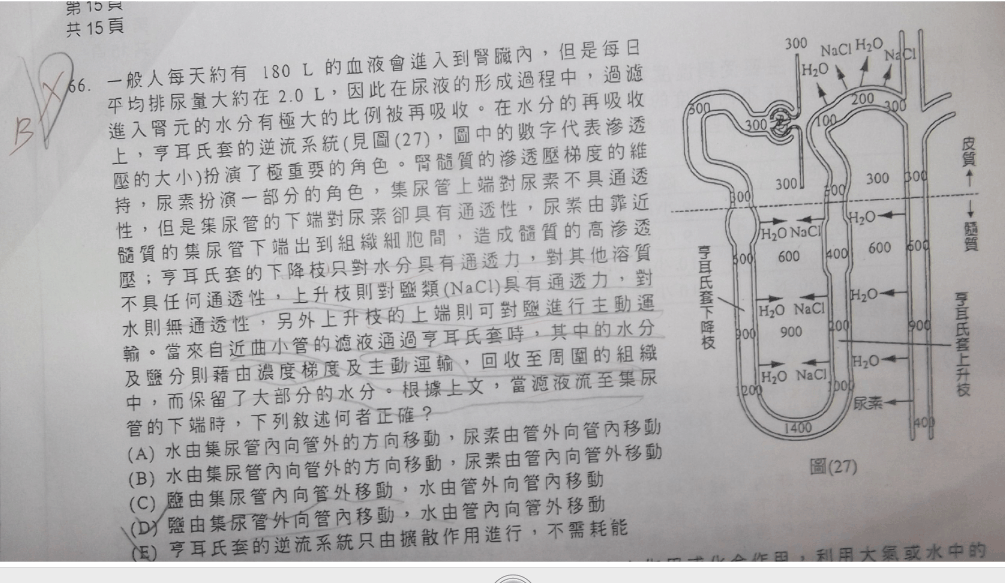 第15頁
共15頁
B
66. 一般人每天約有 180 L 的血液會進入到腎臟內，但是每日
平均排尿量大約在 2.0 L，因此在尿液的形成過程中，過濾
進入腎元的水分有極大的比例被再吸收。在水分的再吸收
上，亨耳氏套的逆流系統(見圖(27)，圖中的數字代表滲透
壓的大小)扮演了極重要的角色。腎髓質的滲透壓梯度的維
持，尿素扮演一部分的角色，集尿管上端對尿素不具通透
性，但是集尿管的下端對尿素卻具有通透性，尿素由靠近
髓質的集尿管下端出到組織細胞間，造成髓質的高滲透
壓；亨耳氏套的下降枝只對水分具有通透力，對其他溶質
不具任何通透性，上升枝則對鹽類(NaCl)具有通透力，對
水則無通透性，另外上升枝的上端則可對鹽進行主動運
輸。當來自近曲小管的濾液通過亨耳氏套時，其中的水分
及鹽分則藉由濃度梯度及主動運輸，回收至周圍的組織
中，而保留了大部分的水分。根據上文，當濾液流至集尿
管的下端時，下列敘述何者正確？
(A) 水由集尿管內向管外的方向移動，尿素由管外向管內移動
(B) 水由集尿管內向管外的方向移動，尿素由管內向管外移動
(C) 鹽由集尿管內向管外移動，水由管外向管內移動
(D) 鹽由集尿管外向管內移動，水由管內向管外移動
(E) 亨耳氏套的逆流系統只由擴散作用進行，不需耗能
300 NaCl H₂O NaCl
H₂O
200 300
300 300 100
300 300
300
皮質
髓質
H₂O NaCl H₂O
600 400 600 600
H₂O NaCl H₂O
900 900 900
H₂O NaCl H₂O
尿素
1400
亨耳氏套下降枝
亨耳氏套上升枝
圖(27)
利用大氣或水中的